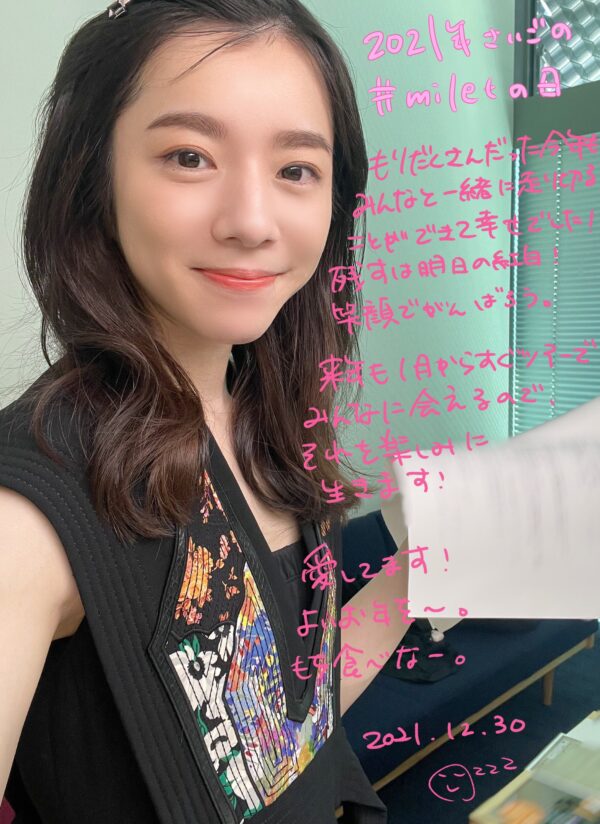 2021年さいごの
#miletの日
もりだくさんだった今年も
みんなと一緒に走り切る
ことができて幸せでした!
残すは明日の紅白!
笑顔でがんばろう。
来年も1月からすぐツアーで
みんなに会えるので、
それを楽しみに
生きます!
愛してます!
よいお年を〜。
もち食べなー。
2021.12.30
zzz